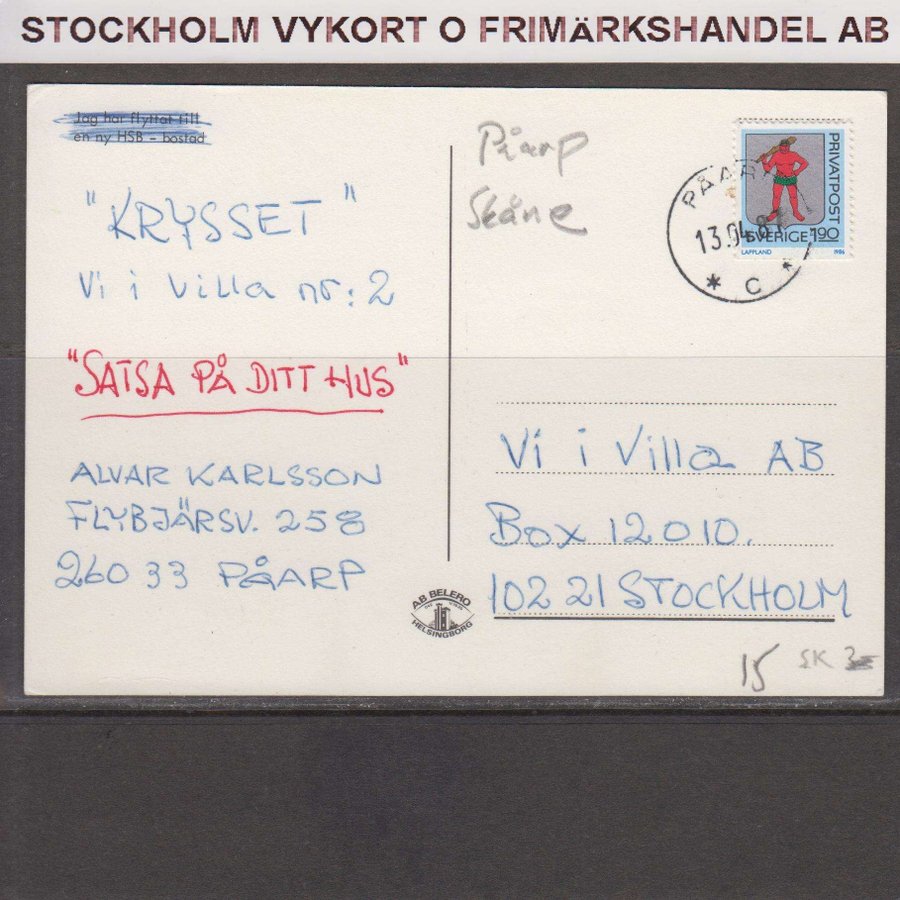 STOCKHOLM VYKORT O FRIMÄRKSHANDEL AB
Jag har flyttat till
en ny HSB - bostad
"KRYSSET"
Vi i Villa nr: 2
"SATSA PÅ DITT HUS"
ALVAR KARLSSON
FLYBJÄRSV. 258
260 33 PÅARP
Påarp
Skåne
PRIVATPOST
SVERIGE 190
LAPPLAND 1986
PÅARP
13.04.87
* C *
Vi i Villa AB
Box 12010.
102 21 STOCKHOLM
AB BELERO
HELSINGBORG
15 SK